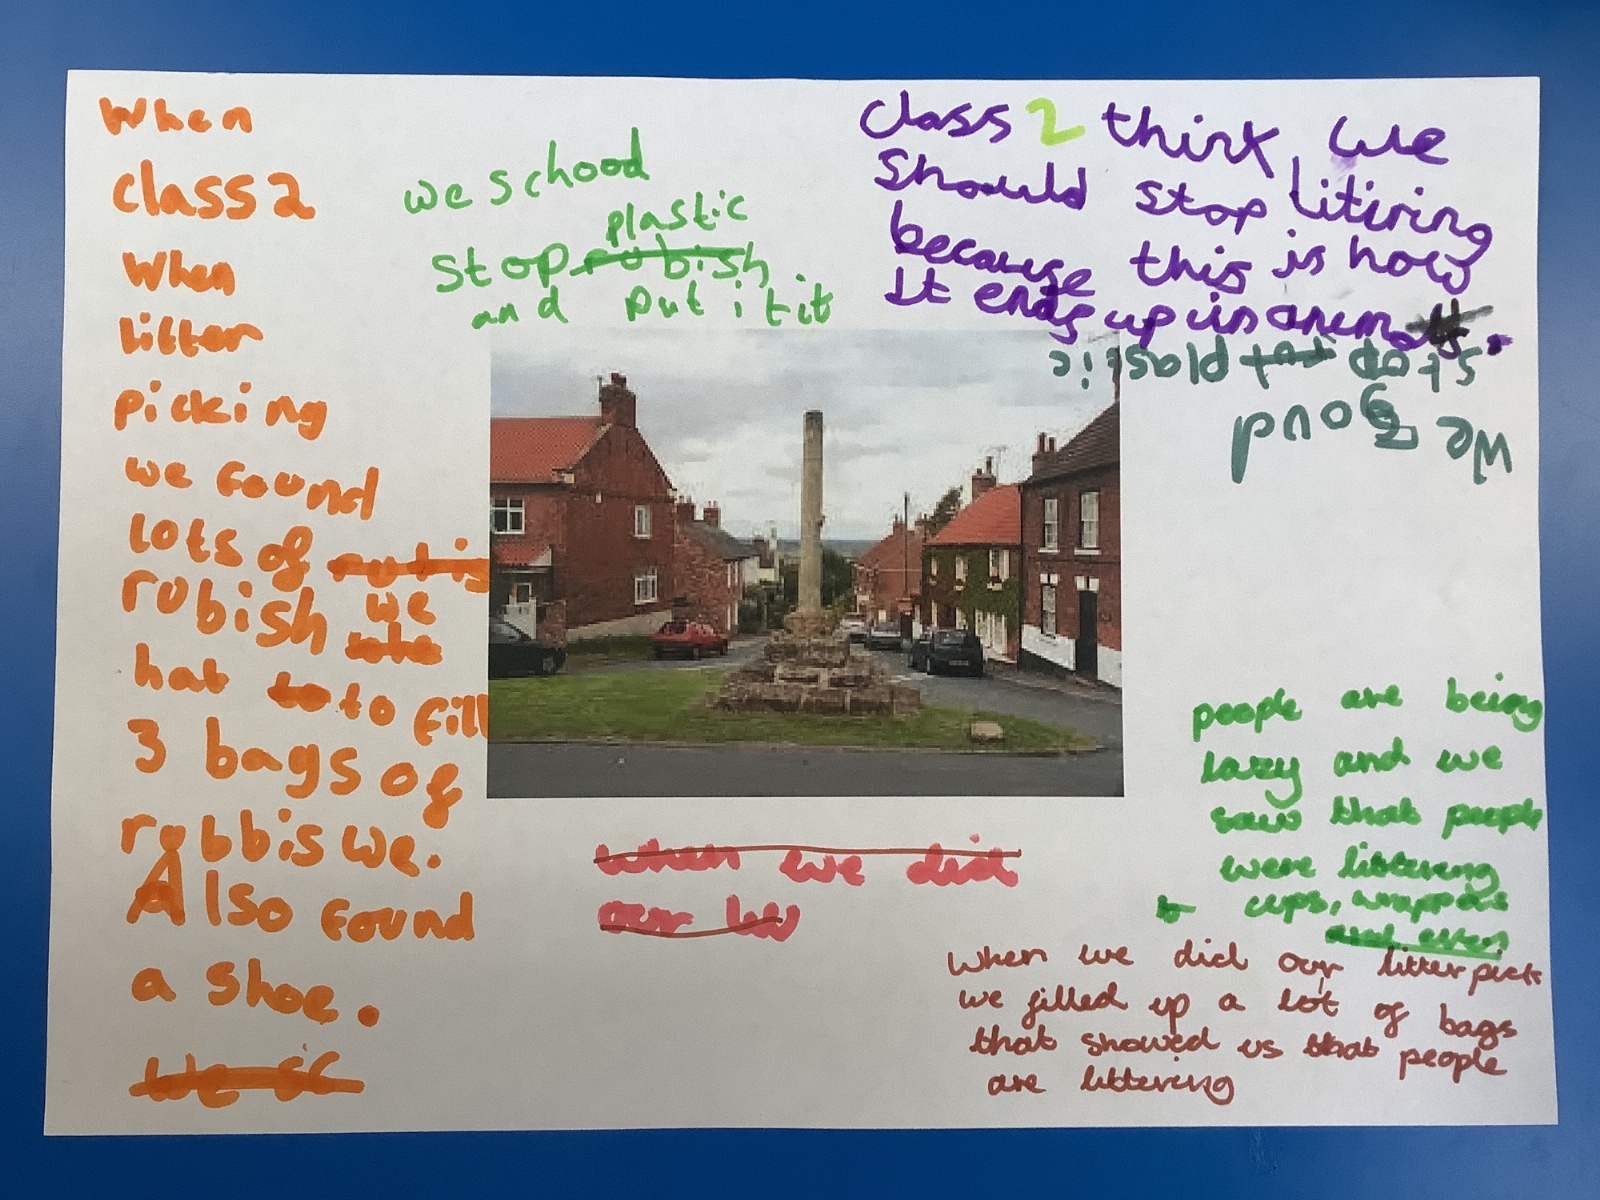 When
class 2
When
litter
picking
we found
lots of rubis
rubish we
hat to fill
3 bags of
rubbis we.
Also found
a shoe.
we schood
plastic
stop rubish
and put it it
class 2 think we
should stop litiring
because this is how
It ends up in animals.
We Found
stop plastic
people are being
lazy and we
saw that people
were littering
cups, wrappers
when we did
our
When we did our litter pick
we filled up a lot of bags
that showed us that people
are littering